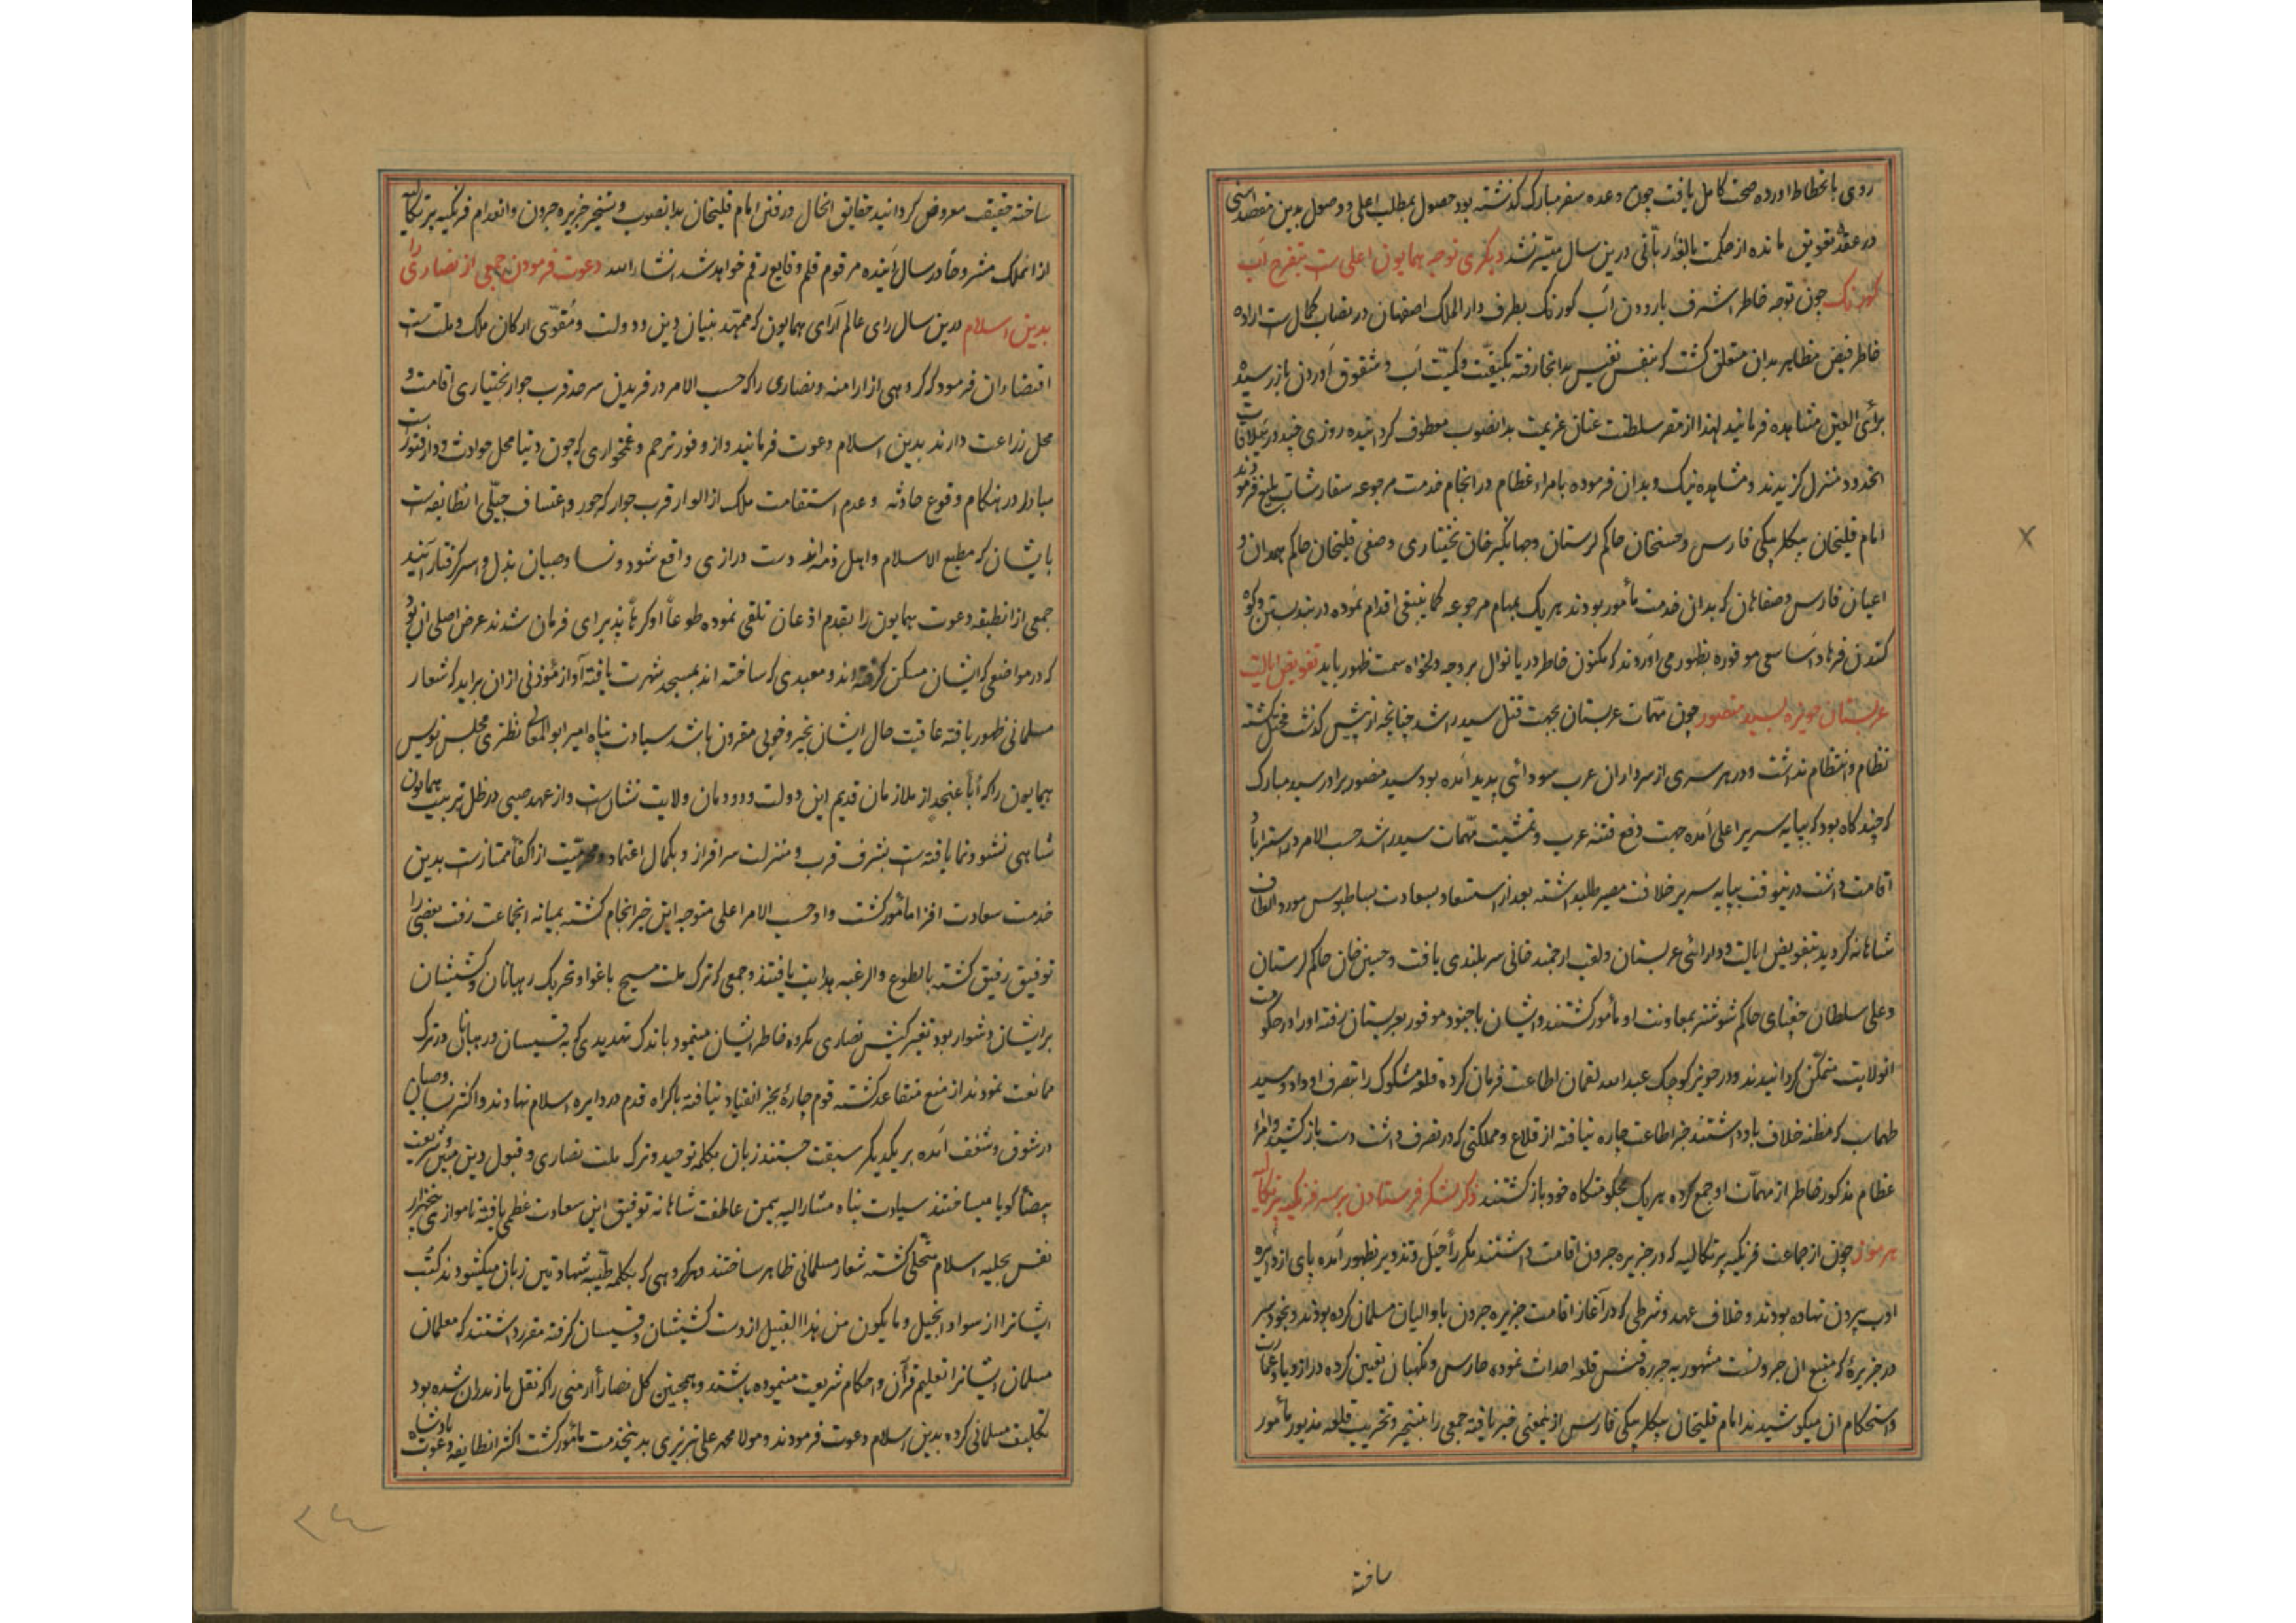 روی بانحطاط اورده صحت کامل یافت چون وعده سفر مبارک گذشته بود حصول بمطلب اعلی و وصول بدین مقصد اسنی
در عقده تعویق مانده از حکمت بالغهٔ ربّانی درین سال میسّر نشد دیگری توجه همایون اعلی است بتفرج آب
کورنک چون توجه خاطر اشرف باردون آب کورنک بطرف دار الملک اصفهان در نصاب کمال است اراده
خاطر فیض مظاهر بدان متعلق گشت که بنفس نفیس بدانجا رفته بکیفیّت و کمیّت آب و شقوق آوردن باز رسیده
برأی العین مشاهده فرمایند لهذا از مقر سلطنت عنان عزیمت بدانصوب معطوف گردانیده روزی چند در ییلاقات
انحدود منزل گزیدند و مشاهده نیک و بد آن فرموده بامراء عظام در انجام خدمت مرجوعه سفارشات بلیغ فرمودند
امام قلیخان بیکلربیکی فارس و حسنخان حاکم لرستان و جهانگیر خان بختیاری و صفی قلیخان حاکم همدان و
اعیان فارس و صفاهان که بدان خدمت مأمور بودند هر یک بمهام مرجوعه کما ینبغی اقدام نموده در بند بستن و کوه
کندن فرهاد آسا سعی موفوره بظهور می آوردند که مکنون خاطر دریا نوال بر وجه دلخواه سمت ظهور یابد تفویض ایالت
عربستان حویزه بسید منصور چون مهمّات عربستان بجهت قتل سید راشد چنانچه از پیش گذشت مختل گشته
نظام و انتظام نداشت و در هر سری از سرداران عرب سودائی پدید آمده بود سید منصور برادر سید مبارک
که چند گاه بود که بپایه سریر اعلی آمده جهت دفع فتنه عرب و تمشیت مهمّات سید راشد حسب الامر در استراباد
اقامت داشت درینوقت بپایه سریر خلافت مصیر طلبداشته بعد از استسعاد بسعادت بساطبوس مورد الطاف
شاهانه گردید بتفویض ایالت و دارائی عربستان و لقب ارجمند خانی سربلندی یافت و حسین خان حاکم لرستان
و علی سلطان چغتای حاکم شوشتر بمعاونت او مأمور گشتند و ایشان با جنود موفور بعربستان رفته او را در حکومت
انولایت متمکّن گردانیدند و در حویز کوچک عبدالله لقمان اطاعت فرمان کرده قلعه مشکوک را بتصرف او داد و سید
طهماسب که مظنه خلاف باو داشتند جز اطاعت چاره نیافته از قلاع و مملکتی که در تصرف داشت دست باز کشید و امراء
عظام مذکور خاطر از مهمّات او جمع کرده هر یک بحکومتگاه خود باز گشتند ذکر لشکر فرستادن بر سر فرنگیه پرتکالیه
هرموز چون از جماعت فرنگیه پرتکالیه که در جزیره جرون اقامت داشتند مکرراً حیل و تذویر بظهور آمده پای از دایره
ادب بیرون نهاده بودند و خلاف عهد و شرطی که در آغاز اقامت جزیره جرون با والیان مسلمان کرده بودند و بخود سر
در جزیرهٔ که منبع آب جرونست مشهور به جزیره قشم قلعه احداث نموده حارس و نگهبان تعیین کرده در ازدیاد عمارت
و استحکام ان میکوشیدند امام قلیخان بیکلربیکی فارس ازینمعنی خبر یافته جمعی را بتسخیر و تخریب قلعه مذبور مأمور
ساخته
ساخته حقیقت معروض گردانید حقایق انحال و رفتن امام قلیخان بدانصوب و تسخیر جزیره جرون و انعدام فرنگیه پرتکالیه
از انملک مشروحا در سال آینده مرقوم قلم وقایع رقم خواهد شد انشاء الله دعوت فرمودن جمعی از نصاری را
بدین اسلام درین سال رای عالم آرای همایون که ممهّد بنیان دین و دولت و مقوّی ارکان ملک و ملت است
اقتضاء ان فرمود که گروهی از ارامنه و نصاری را که حسب الامر در فریدن سرحد قرب جوار بختیاری اقامت و
محل زراعت دارند بدین اسلام دعوت فرمایند و از وفور ترحم و غمخواری که چون دنیا محل حوادث و دار فتور است
مبادا در هنگام وقوع حادثه و عدم استقامت ملک از الوار قرب جوار که جور و اعتساف جبلّی انطایفه است
بایشان که مطیع الاسلام و اهل ذمه اند دست درازی واقع شود و نسا و صبیان بذل و اسر گرفتار آیند
جمعی از انطبقه دعوت همایون را بقدم اذعان تلقی نموده طوعاً او کرهاً پذیرای فرمان شدند غرض اصلی ان بود
که در مواضعی که ایشان مسکن گرفته اند و معبدی که ساخته اند بمسجد شهرت یافته آواز مؤذنی ازان براید که شعار
مسلمانی ظهور یافته عاقبت حال ایشان بخیر و خوبی مقرون باشد سیادت پناه امیر ابو المعالی نطنزی مجلس نویس
همایون را که اباً عنجد از ملازمان قدیم این دولت و دودمان ولایت نشانست و از عهد صبی در ظل تربیت همایون
شاهی نشو و نما یافته است بشرف قرب و منزلت سرافراز و بکمال اعتماد و محرمیّت از اکفا ممتاز است بدین
خدمت سعادت افزا مأمور گشت و او حسب الامر اعلی متوجه این خیر انجام گشته بمیانه انجماعت رفت بعضی را
توفیق رفیق گشته بالطوع و الرغبه هدایت یافتند و جمعی که ترک ملت مسیح باغوا و تحریک رهبانان و کشیشان
بر ایشان دشوار بود تغییر کیش نصاری مکروه خاطر ایشان مینمود باندک تهدیدی که به قسیسان و رهبانان در ترک
ممانعت نمودند از منع متقاعد گشته قوم چارهٔ بجز انقیاد نیافته باکراه قدم در دایره اسلام نهادند و اکثر نسا و صبیان
در شوق و شغف آمده بر یکدیگر سبقت جستند زبان بکلمه توحید و ترک ملت نصاری و قبول دین مبین و شریعت
بیضا گویا میساختند سیادت پناه مشار الیه بیمن عاطفت شاهانه توفیق این سعادت عظمی یافته تا موازی پنجهزار
نفس بحلیه اسلام متحلی گشته شعار مسلمانی ظاهر ساختند و هر گروهی که بکلمه طیّبه شهادتین زبان میگشودند کتب
ایشانرا از سواد انجیل و ما یکون من هذا القبیل از دست کشیشان و قسیسان گرفته مقرر داشتند که معلمان
مسلمان ایشانرا تعلیم قرآن و احکام شریعت مینموده باشند و همچنین کل نصارأ ارمنی را که نقل مازندران شده بود
تکلیف مسلمانی کرده بدین اسلام دعوت فرمودند و مولا محمد علی تبریزی بدینخدمت مأمور گشت اکثر انطایفه دعوت پادشاه
۲۴